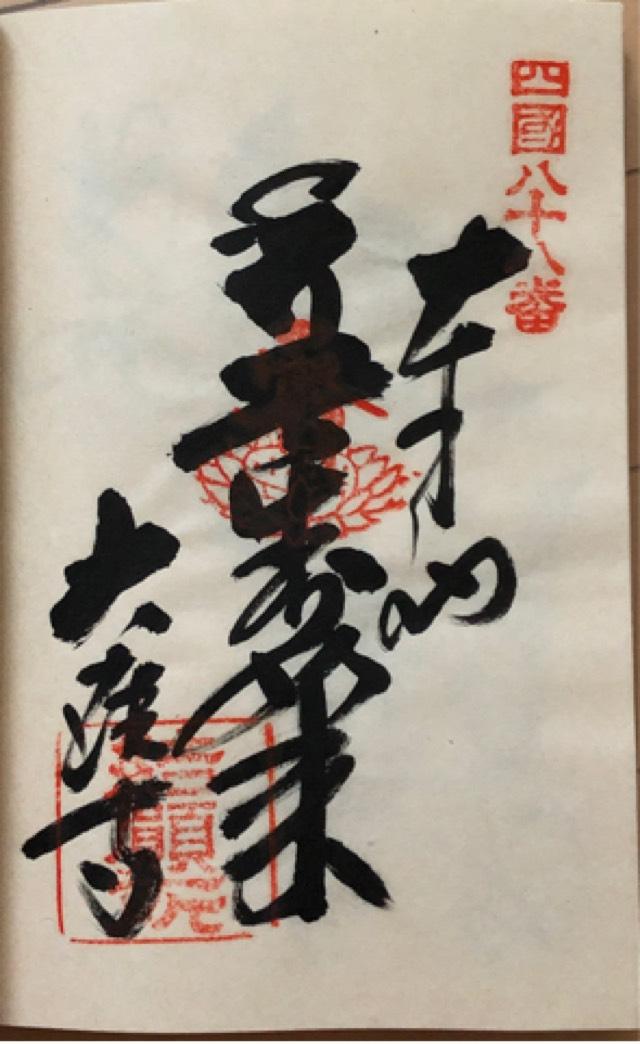 四國八十八番
奉納
薬師如来
大窪寺